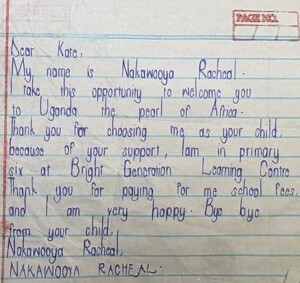 PAGE NO.
Dear Kate,
My name is Nakawooya Racheal.
I take this opportunity to welcome you
to Uganda the pearl of Africa.
Thank you for choosing me as your child,
because of your support, Iam in primary
six at Bright Generation Learning Centre
Thank you for paying for me school fees,
and I am very happy. Bye bye
from your child,
Nakawooya Racheal,
NAKAWOOYA RACHEAL.